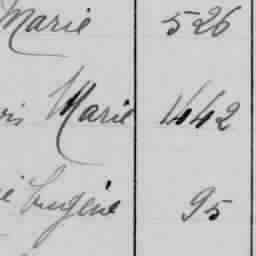 Marie 526
Marie 1442
Eugène 95